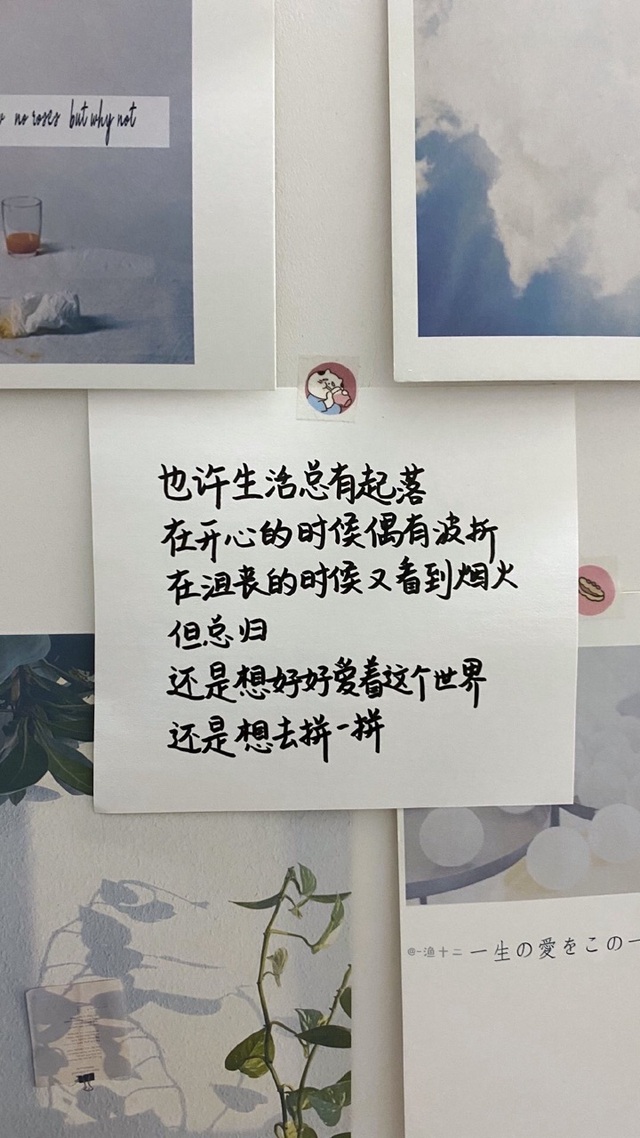 no roses but why not
也许生活总有起落
在开心的时候偶有波折
在沮丧的时候又看到烟火
但总归
还是想好好爱着这个世界
还是想去拼一拼
@一渔十二 一生の愛をこの一